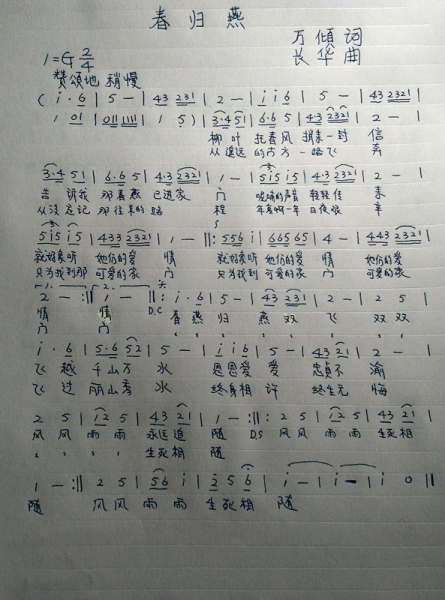 春归燕
1=G 2/4 万倾词
赞颂地 稍慢 长华曲
( i·6 | 5 - | 43 231 | 2 - | i i 6 | 5 - | 43 2321 |
1 01 | 011 1111 | 1 5 ) | 3·4 51 | 6·6 5 | 4·3 2321 | 2 - |
柳叶 托春风 捎来一封 信
从遥远 的南方 一路飞 奔
3·4 51 | 6·6 5 | 4·3 2321 | 1 - | 5i5 i5 | 4·3 2321 | 2 - |
告诉我 那春燕 已进家 门 呢喃的声音 轻轻传 来
从没忘记 那往来的路 程 年复一年 日夜艰 辛
5i5 i5 | 433 2321 | 1 - ||: 556 i | 665 65 | 4 - | 443 2321 |
就好爱听 她们的爱 情 就好爱听 她们的爱 情 她们的爱
只为找到那 可爱的家 门 只为找到 可爱的家 门 可爱的家
2 - :|| 1 - || : i·6 | 5 - | 43 231 | 2 - | 2 5 |
情 情 D.C 春燕 归 燕双 飞 双双
门 门
i·6 | 5·6 52 | 5 - | i i 6 | 5 - | 43 21 | 2 - |
飞越 千山万 水 恩恩爱 爱 忠贞不 渝
飞过 丽山秀 水 终身相 许 终生无 悔
2 5 | i2 5 | 43 21 | 1 - :||: 2 5 | i2 5 | 43 21 |
风风 雨雨 永远追 随 D.S 风风 雨雨 生死相
生死相 随
1 - :|| 2 5 | 56 i | 2 5 6 | i - | i - | i 0 ||
随 风风 雨雨 生死相 随